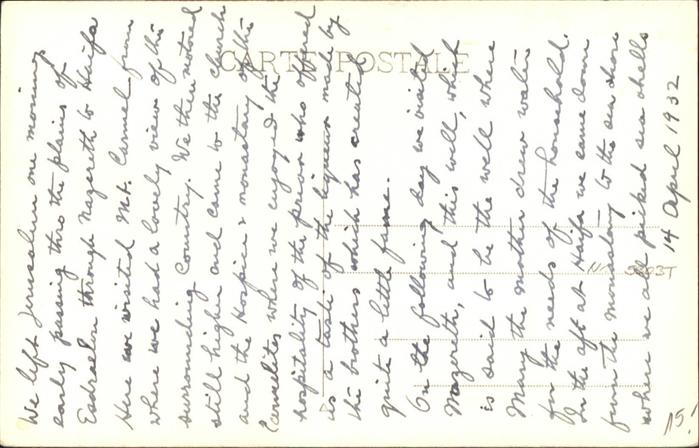 CARTE POSTALE
We left Jerusalem one morning
early passing thro the plains of
Esdraelm through Nazareth to Haifa
Here we visited Mt. Carmel from
where we had a lovely view of the
surrounding Country. We then motored
still higher and came to the church
and the Hospice & monastary of the
Carmelites where we enjoyed the
hospitality of the prior who offered
us a taste of the liqueur made by
the brothers which has created
quite a little fame.
On the following day we visited
Nazareth, and this well, which
is said to be the well where
Mary the mother drew water
for the needs of the household.
In the aft at Haifa we came down
from the monastary to the sea shore
where we all picked sea shells
14 April 1932
15/